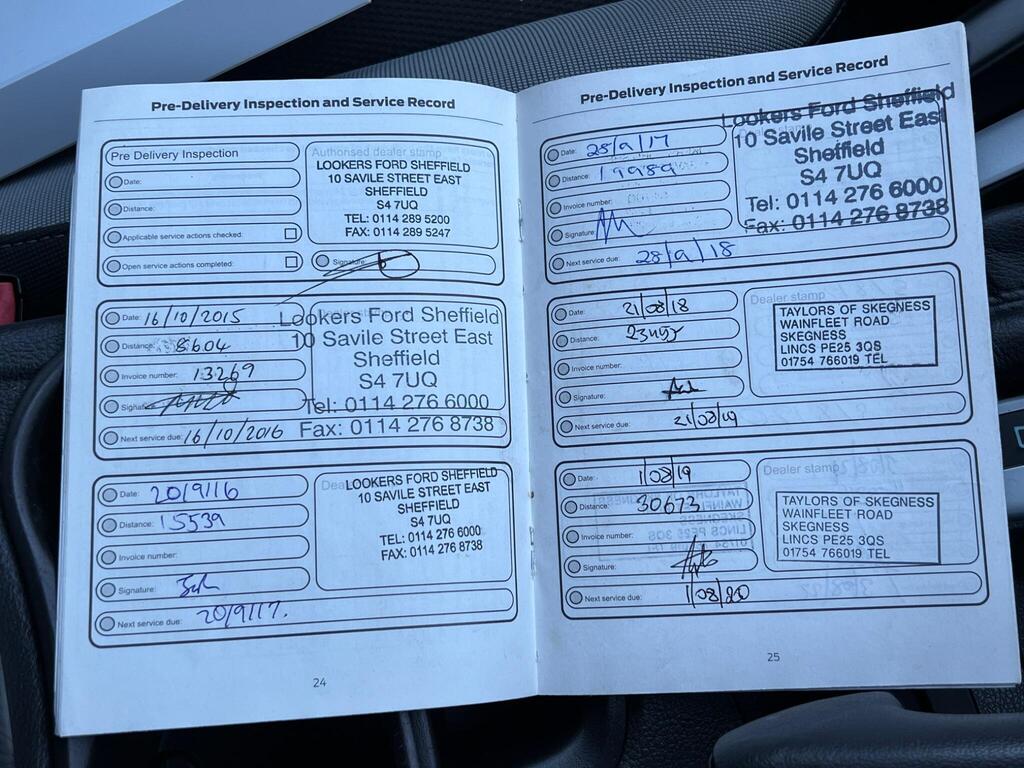 Pre-Delivery Inspection and Service Record
Pre Delivery Inspection
Date:
Distance:
Applicable service actions checked:
Open service actions completed:
Authorised dealer stamp
LOOKERS FORD SHEFFIELD
10 SAVILE STREET EAST
SHEFFIELD
S4 7UQ
TEL: 0114 289 5200
FAX: 0114 289 5247
Signature:
Date: 16/10/2015
Distance: 8604
Invoice number: 13269
Signature:
Next service due: 16/10/2016
Lookers Ford Sheffield
10 Savile Street East
Sheffield
S4 7UQ
Tel: 0114 276 6000
Fax: 0114 276 8738
Date: 20/9/16
Distance: 15539
Invoice number:
Signature:
Next service due: 20/9/17.
Dealer
LOOKERS FORD SHEFFIELD
10 SAVILE STREET EAST
SHEFFIELD
S4 7UQ
TEL: 0114 276 6000
FAX: 0114 276 8738
24
Pre-Delivery Inspection and Service Record
Date: 28/9/17
Distance: 19989
Invoice number:
Signature:
Next service due: 28/9/18
Lookers Ford Sheffield
10 Savile Street East
Sheffield
S4 7UQ
Tel: 0114 276 6000
Fax: 0114 276 8738
Date: 21/08/18
Distance:
Invoice number:
Signature:
Next service due: 21/08/19
Dealer stamp
TAYLORS OF SKEGNESS
WAINFLEET ROAD
SKEGNESS
LINCS PE25 3QS
01754 766019 TEL
Date: 1/08/19
Distance: 30673
Invoice number:
Signature:
Next service due: 1/08/20
Dealer stamp
TAYLORS OF SKEGNESS
WAINFLEET ROAD
SKEGNESS
LINCS PE25 3QS
01754 766019 TEL
25